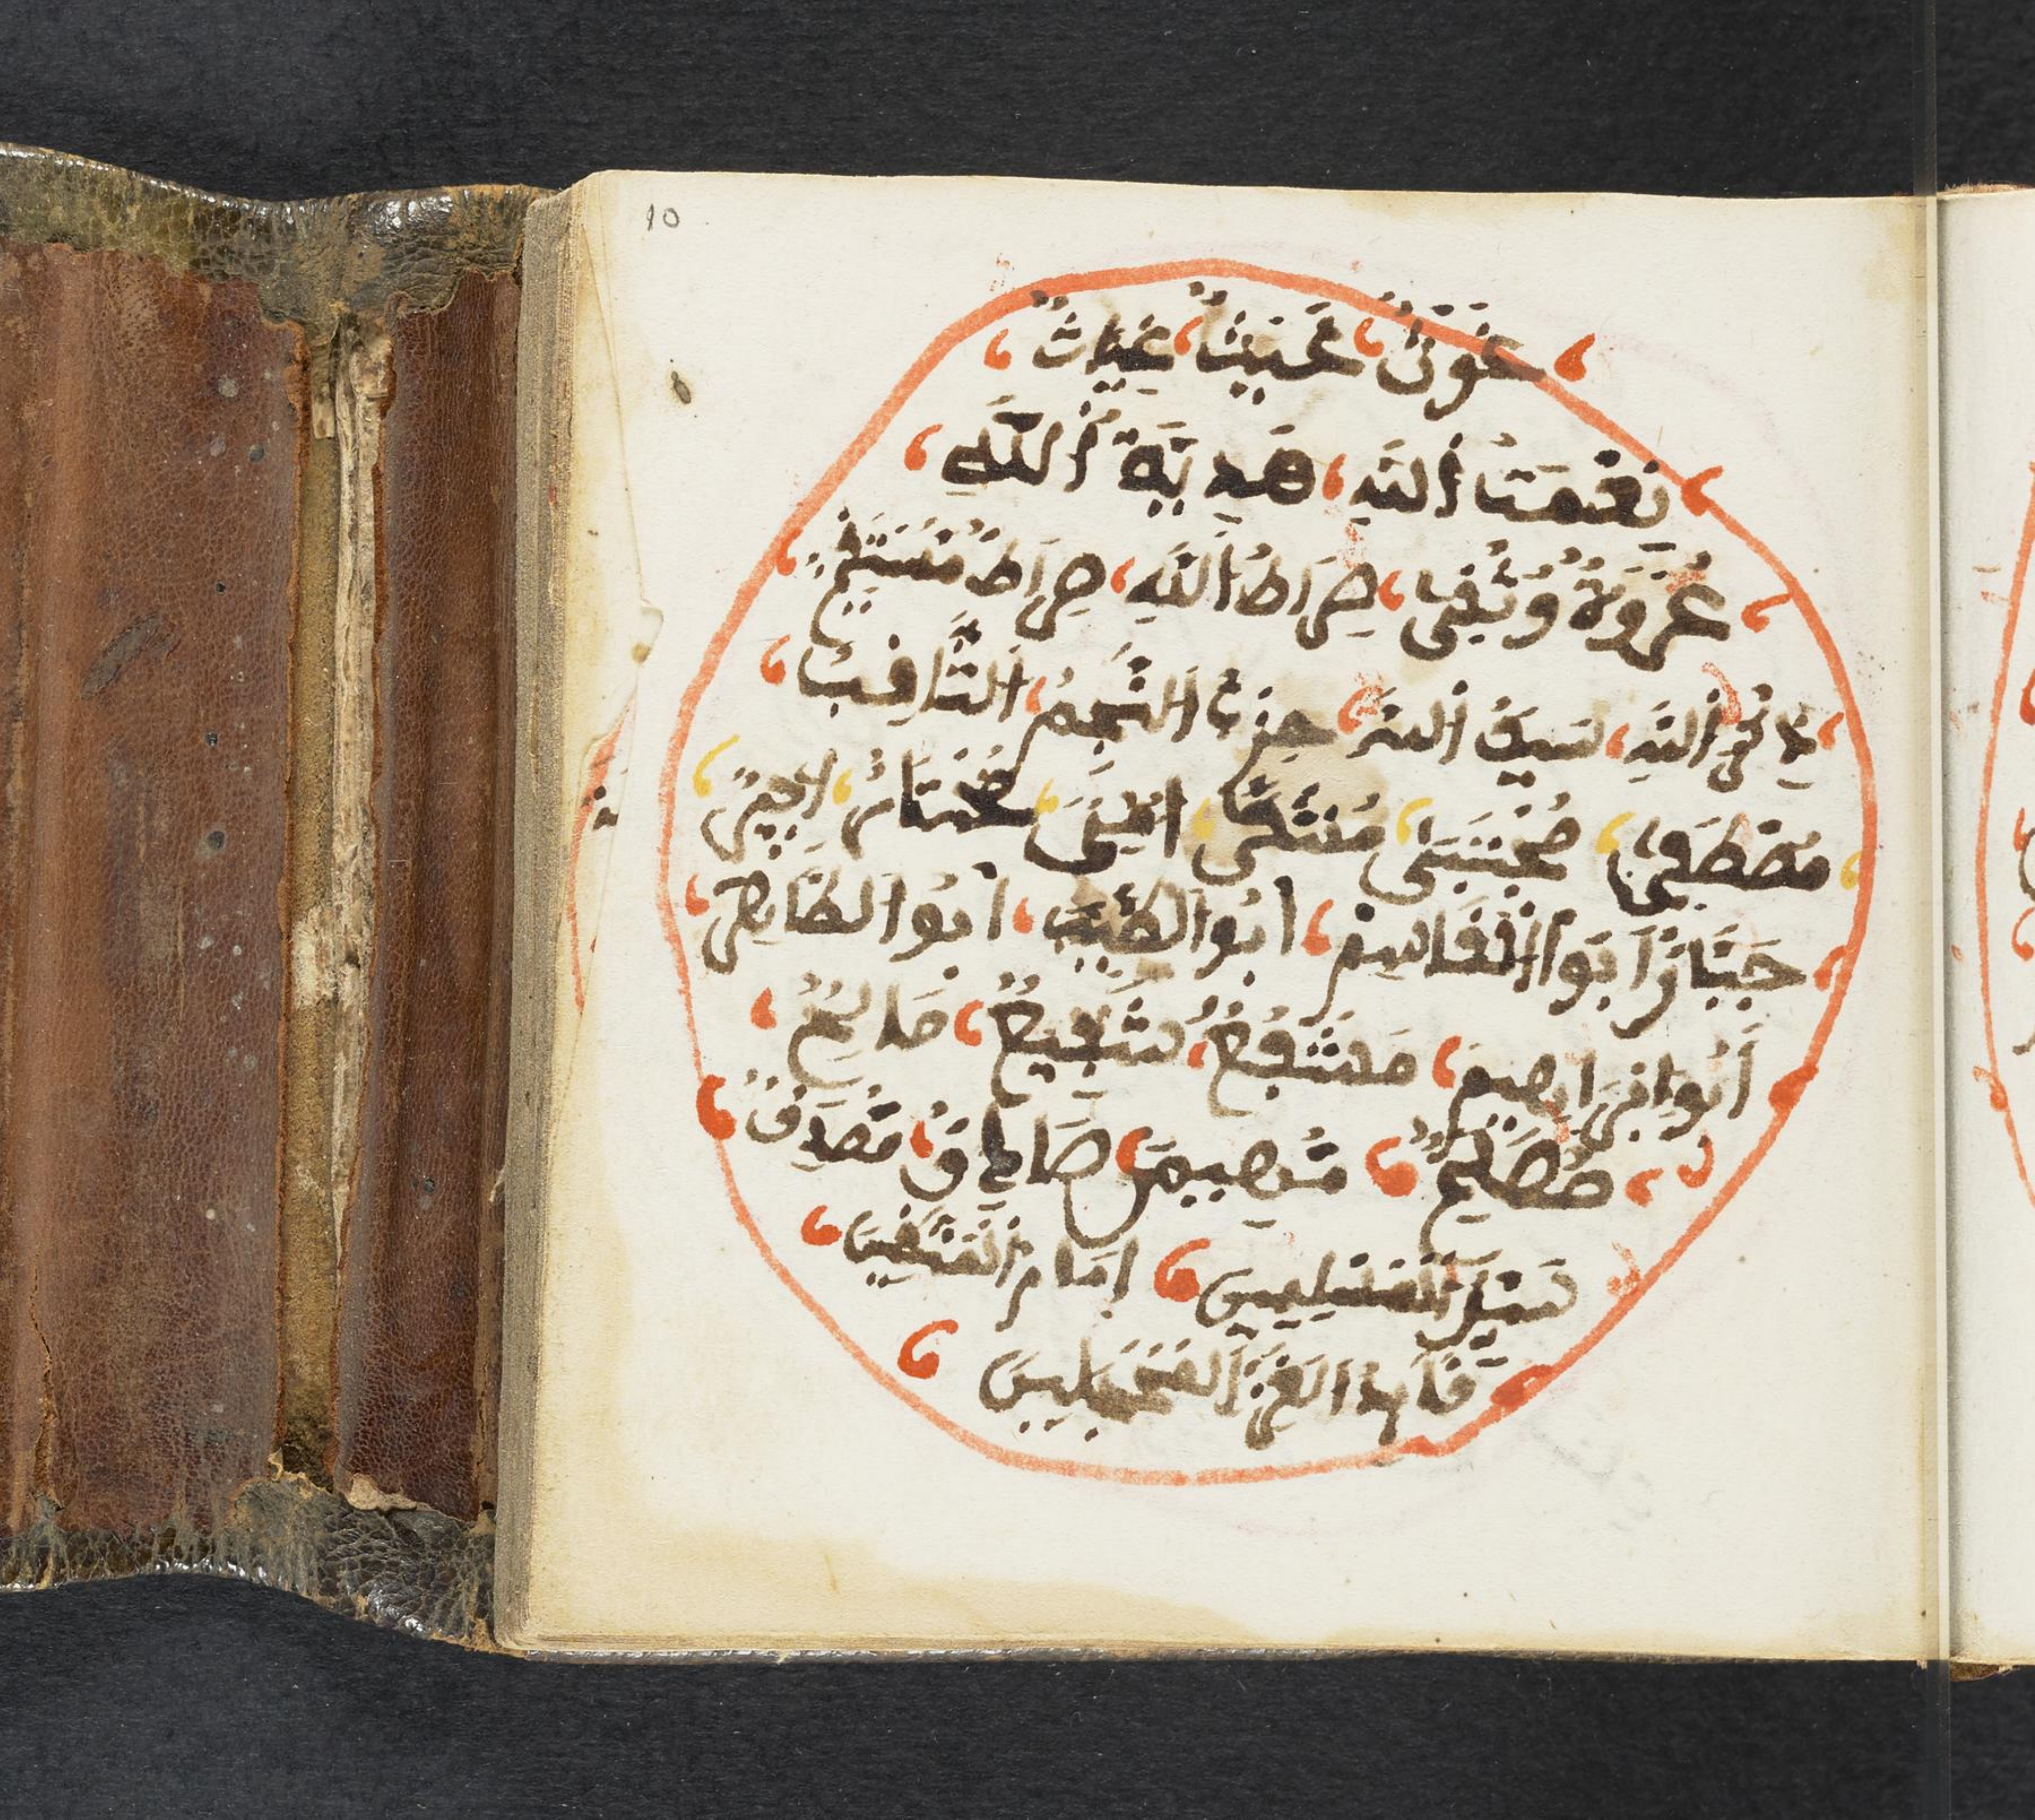 10
غَوْثٌ غَيْثٌ غِيَاثٌ
نِعْمَتُ اُللَّهِ هَدِيَّةُ اُللَّهِ
عُرْوَةٌ وُثْقَى صِرَاطُ اُللَّهِ صِرَاطٌ مُسْتَقِيمٌ
ذِكْرُ اُللَّهِ سَيْفُ اُللَّه حِزْبُ اَلنَّجْمُ اَلثَّاقِبُ
مُصْطَفَى مُجْتَبَى مُنْتَقَى اُمِّيٌّ مُخْتَارٌ اَجِيرٌ
جَبَّارٌ اَبُوا اُلْقَاسِمْ اَبُوا الطَّيِّبْ اَبُوا الطَّاهِرْ
اَبُوا اِبْرَاهِيمَ مُشَفَّعٌ شَفِيعٌ صَالِحٌ
مُصْلِحٌ مُهَيْمِنٌ صَادِقٌ مُصَدَّقٌ
سَيِّدُ اُلْمُرْسَلِينَ اِمَامُ اُلْمُتَّقِينَ
قَائِدُ الْغُرِّ اَلْمُحَجَّلِينَ